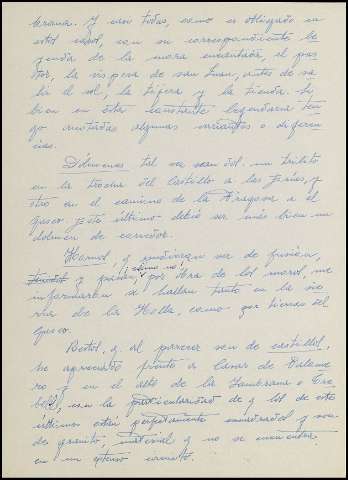 término. Y casi todas, como es obligado en
estos casos, con su correspondiente le
yenda de la mora encantada, el pas
tor, la víspera de San Juan, antes de sa
lir el sol, la tijera y la tienda. Si
bien en esta constante legendaria ten
go recogidas algunas variantes o diferen
cias.
Dólmenes tal vez sean dos: un túmulo
en la trocha del Castillo a las Jarías, y
otro en el camino de la Aragona a el
Gasco. Este último debió ser más bien un
dolmen de corredor.
Hornos, q pudieran ser de fusión,
y patios, ¿cómo no?, por Hra de los moros, me
informaron se hallan tanto en la sie
rra de la Hoello, como por tierras del
Gasco.
Restos, q al parecer son de castillos,
he apreciado junto a Casar de Palome
ro y en el alto de la Zambrana o Tre
bol, con la particularidad de q los de este
último están perfectamente cuadrados y son
de granito, material q no se encuentra
en un extenso circuito.